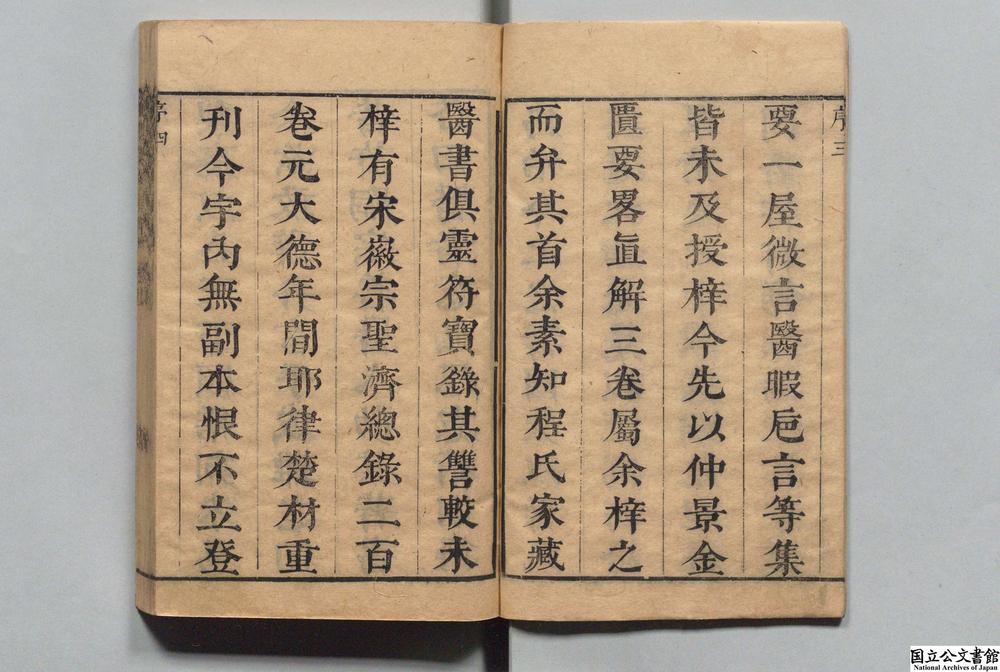 序三
要一屋微言醫暇巵言等集
皆未及授梓今先以仲景金
匱要畧直解三卷屬余梓之
而弁其首余素知程氏家藏
醫書俱靈符寶錄其讐較未
梓有宋徽宗聖濟總錄二百
卷元大德年間耶律楚材重
刊今宇內無副本恨不立登
序四
国立公文書館
National Archives of Japan